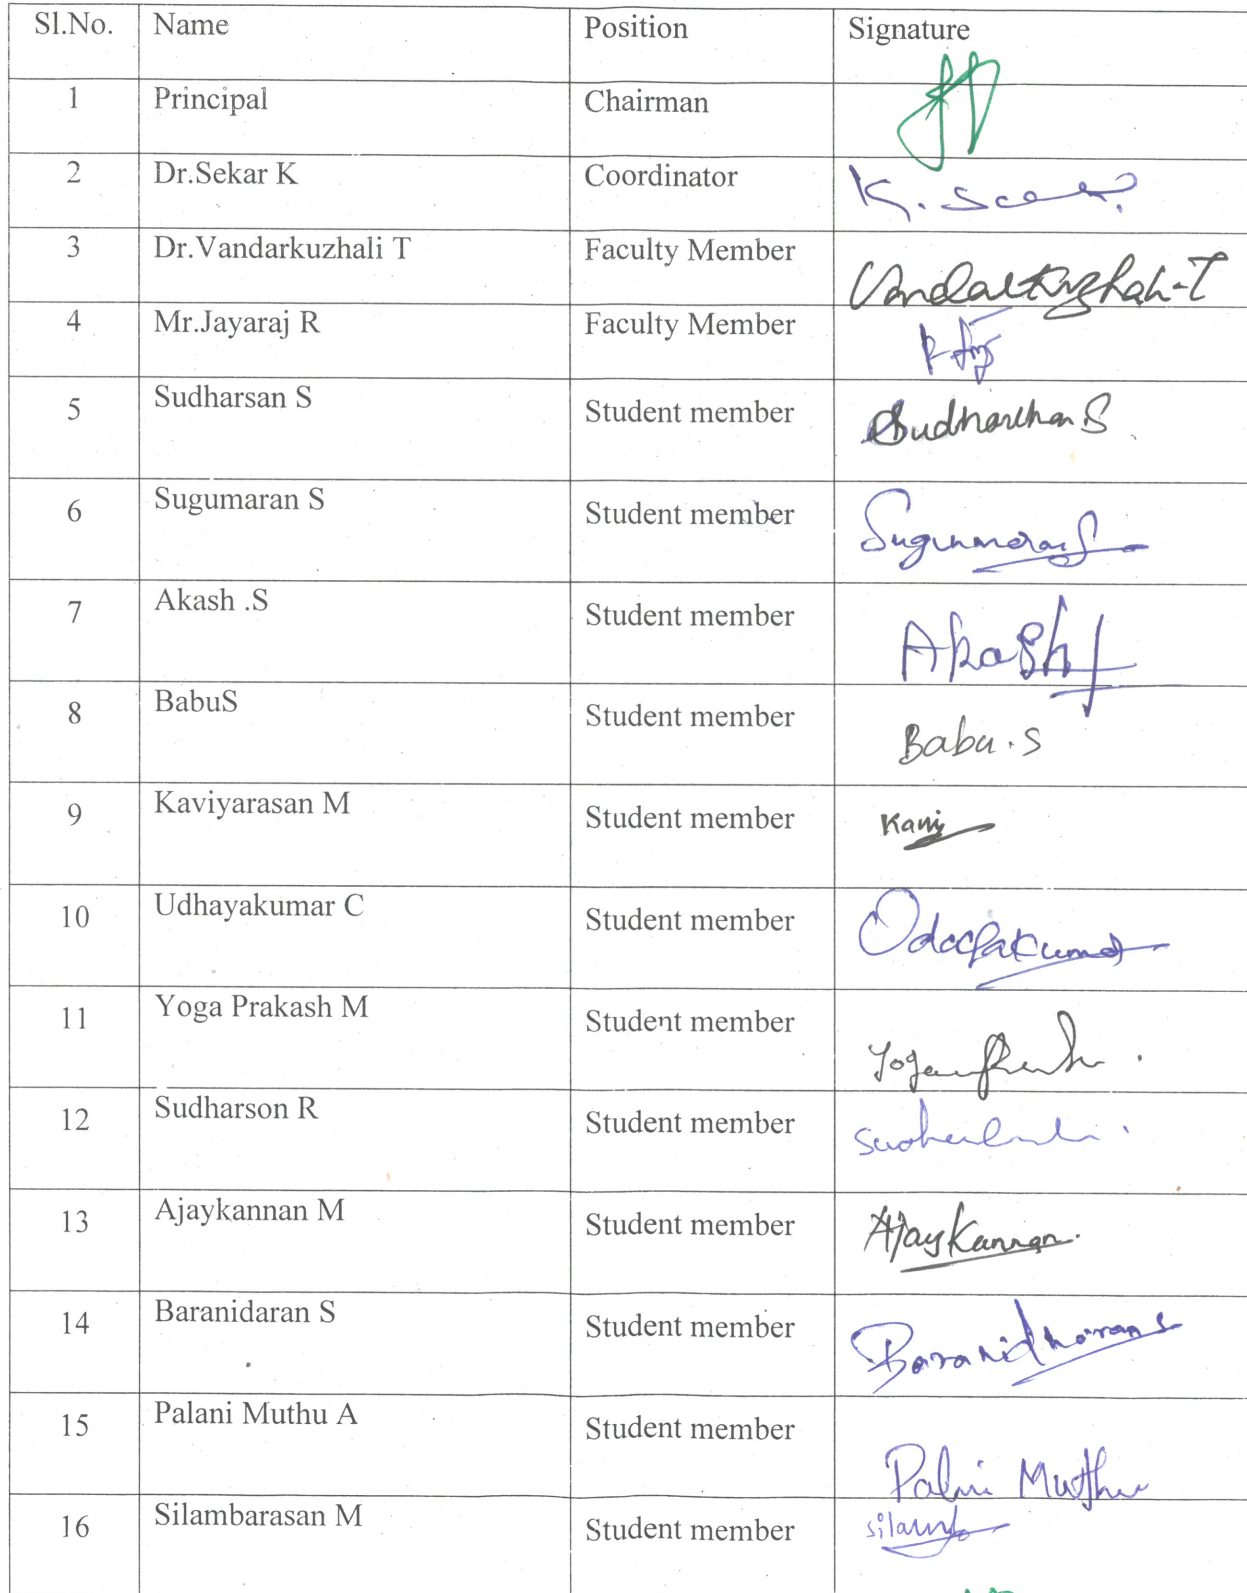 Sl.No. Name Position Signature
1 Principal Chairman
2 Dr.Sekar K Coordinator K.
3 Dr.Vandarkuzhali T Faculty Member Vandarkuzhali-T
4 Mr.Jayaraj R Faculty Member
5 Sudharsan S Student member Sudharshan S
6 Sugumaran S Student member Sugumaran S
7 Akash .S Student member Akash S
8 BabuS Student member Babu.S
9 Kaviyarasan M Student member Kavi
10 Udhayakumar C Student member
11 Yoga Prakash M Student member
12 Sudharson R Student member
13 Ajaykannan M Student member AjayKannan.
14 Baranidaran S Student member Baranidharan S
15 Palani Muthu A Student member Palni Muthu
16 Silambarasan M Student member